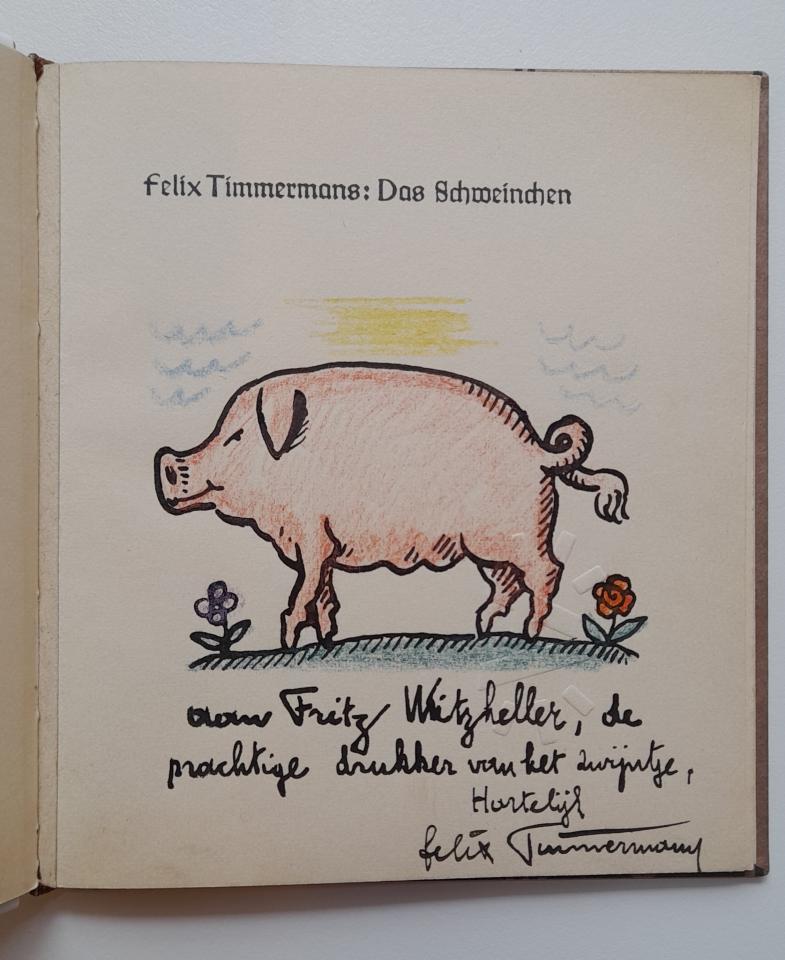 Felix Timmermans: Das Schweinchen
aan Fritz Witzheller, de
prachtige drukker van het zwijntje,
Hartelijk
felix Timmermans